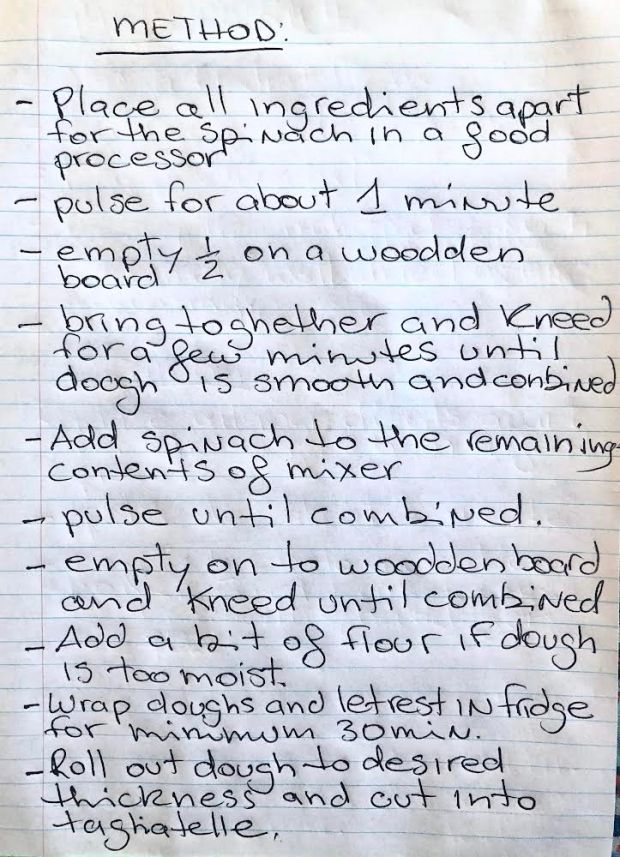 METHOD:
- Place all ingredients apart
for the spinach in a good
processor
- pulse for about 1 minute
- empty 1/2 on a woodden
board
- bring toghether and kneed
for a few minutes until
doogh is smooth and conbined
- Add spinach to the remaining
contents of mixer
- pulse until combined.
- empty on to woodden board
and kneed until combined
- Add a bit of flour if dough
is too moist.
- Wrap doughs and let rest in fridge
for minimum 30min.
- Roll out dough to desired
thickness and cut into
tagliatelle.